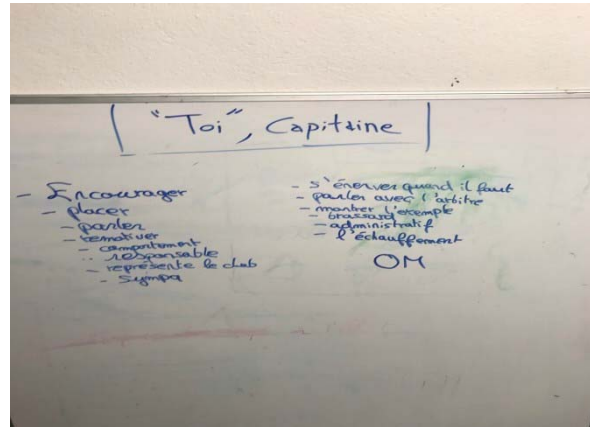 "Toi", Capitaine
- Encourager
- placer
- parler
- remotiver
- comportement
.. responsable
- représente le club
- sympa
- s'énerver quand il faut
- parler avec l'arbitre
- montrer l'exemple
- brassard
- administratif
- l'échauffement
OM